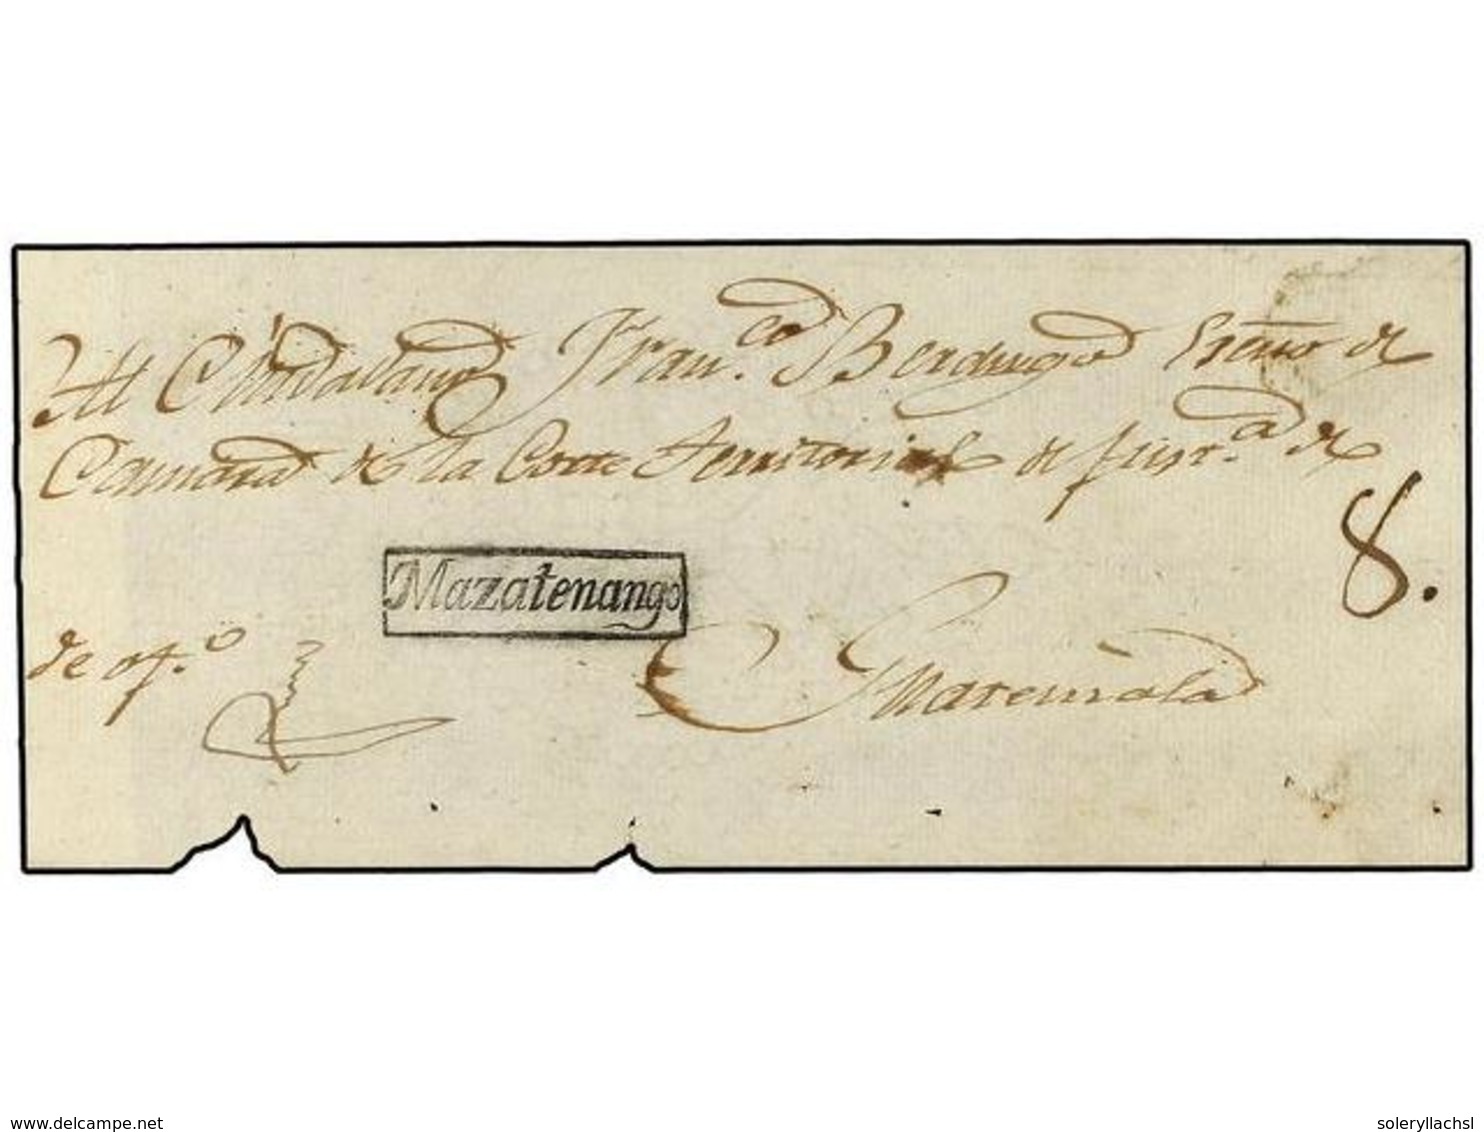 Al Ciudadano Fran.co Berdugo Escno de
Camara de la Corte territorial de Just.a de
8.
Mazatenango
de of.o
Guatemala
delcampe.net
soleryllachsl